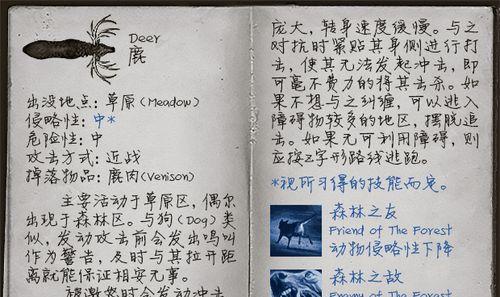 Deer
鹿
出没地点: 草原 (Meadow)
侵略性: 中*
危险性: 中
攻击方式: 近战
掉落物品: 鹿肉 (Venison)
主要活动于草原区, 偶尔
出现于森林区。与狗 (Dog) 类
似, 发动攻击前会发出鸣叫
作为警告, 及时与其拉开距
离就能保证相安无事。
被激怒时会发动冲击
庞大, 转身速度缓慢。与之
对抗时紧贴其身侧进行打
击, 使其无法发起冲击, 即
可毫不费力的将其击杀。如
果不想与之纠缠, 可以逃入
障碍物较多的地区, 摆脱追
击。如果无可利用障碍, 则
应按Z字形路线逃跑。
*视所习得的技能而定。
森林之友
Friend of The Forest
动物侵略性下降
森林之敌
Enemy of The Forest